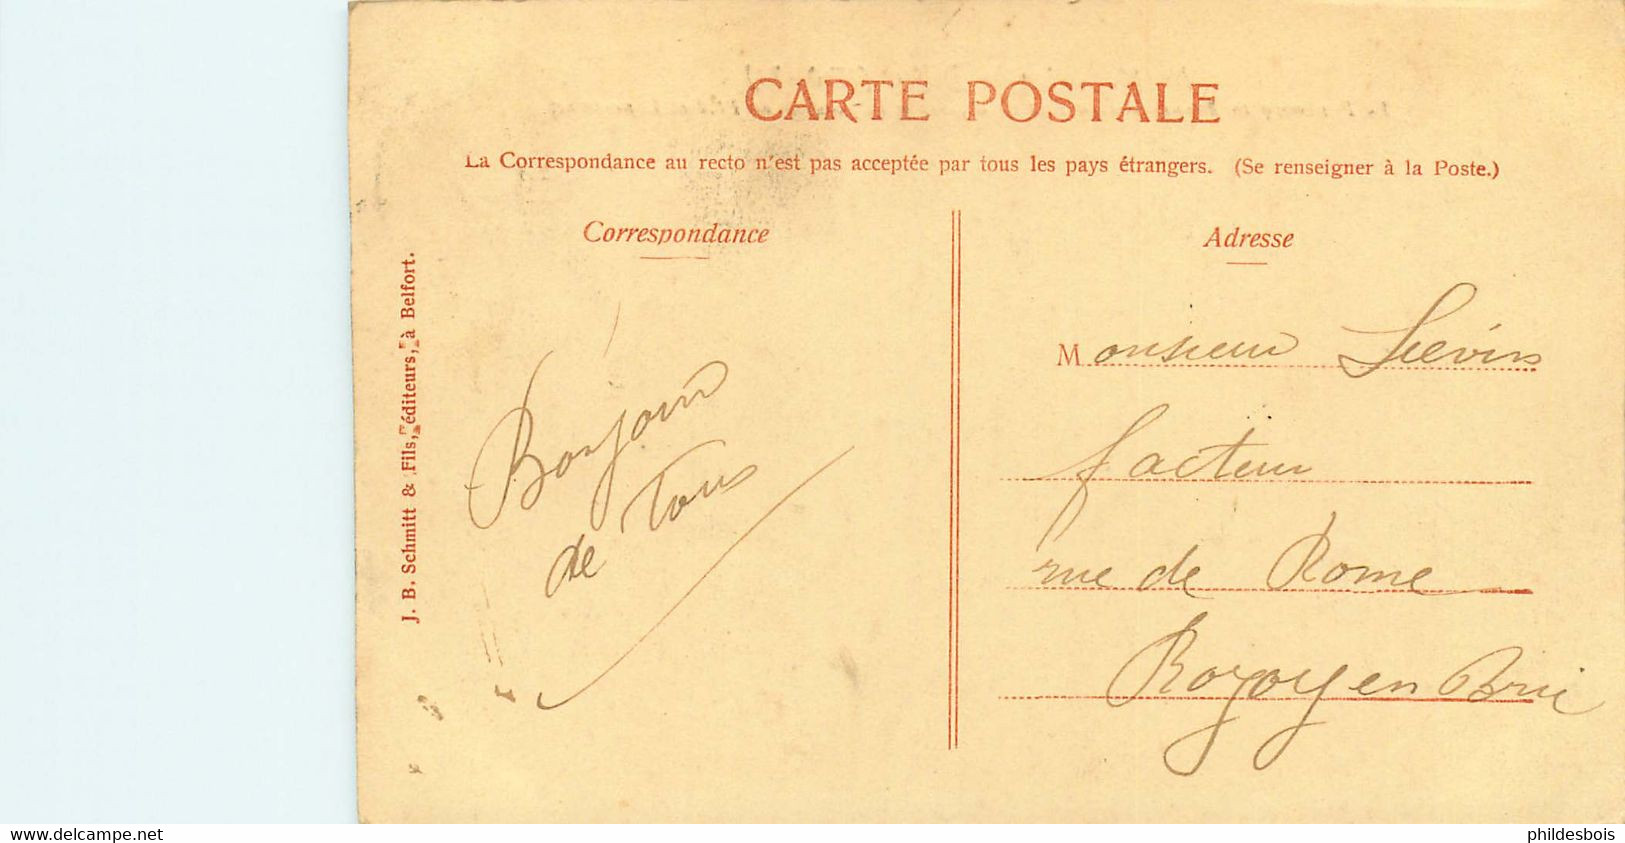 CARTE POSTALE
La Correspondance au recto n'est pas acceptée par tous les pays étrangers. (Se renseigner à la Poste.)
Correspondance
Bonjour
de Tous
Adresse
Monsieur Liévin
facteur
rue de Rome
Rozoy en Brie
J. B. Schmitt & Fils, éditeurs, à Belfort.
www.delcampe.net
phildesbois